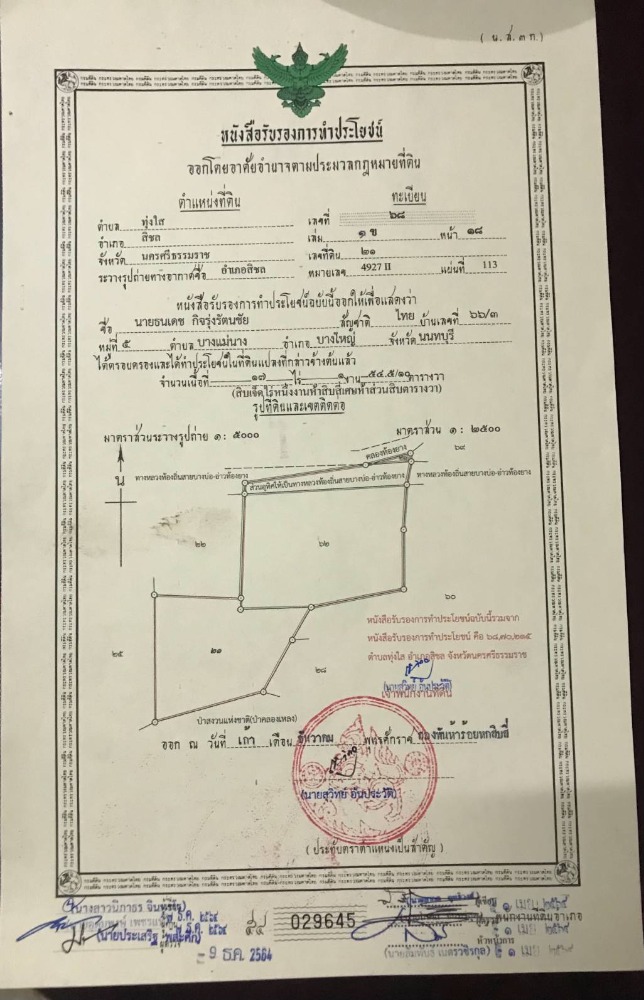 ( น.ส.๓ ก.)
หนังสือรับรองการทำประโยชน์
ออกโดยอาศัยอำนาจตามประมวลกฎหมายที่ดิน
ตำแหน่งที่ดิน ทะเบียน
ตำบล ทุ่งใส เลขที่ ๖๘
อำเภอ สิชล เล่ม ๑ ข หน้า ๑๘
จังหวัด นครศรีธรรมราช เลขที่ดิน ๒๑
ระวางรูปถ่ายทางอากาศชื่อ อำเภอสิชล หมายเลข 4927 II แผ่นที่ 113
หนังสือรับรองการทำประโยชน์ฉบับนี้ออกให้เพื่อแสดงว่า
ชื่อ นายธนเดช กิจรุ่งรัตนชัย สัญชาติ ไทย บ้านเลขที่ ๖๖/๓
หมู่ที่ ๕ ตำบล บางแม่นาง อำเภอ บางใหญ่ จังหวัด นนทบุรี
ได้ครอบครองและได้ทำประโยชน์ในที่ดินแปลงที่กล่าวข้างต้นแล้ว
จำนวนเนื้อที่ ๑๗ ไร่ ๑ งาน ๕๔.๕/๑๐ ตารางวา
(สิบเจ็ดไร่หนึ่งงานห้าสิบสี่เศษห้าส่วนสิบตารางวา)
รูปที่ดินและเขตติดต่อ
มาตราส่วนระวางรูปถ่าย ๑: ๕๐๐๐ มาตราส่วน ๑: ๒๕๐๐
คลองท้องยาง ๖๙
น
ทางหลวงท้องถิ่นสายบางบ่อ-อ่าวท้องยาง ส่วนอุทิศให้เป็นทางหลวงท้องถิ่นสายบางบ่อ-อ่าวท้องยาง ทางหลวงท้องถิ่นสายบางบ่อ-อ่าวท้องยาง
๒๒ ๖๒
๖๐
หนังสือรับรองการทำประโยชน์ฉบับนี้รวมจาก
หนังสือรับรองการทำประโยชน์ คือ ๖๘,๗๐,๒๑๕
ตำบลทุ่งใส อำเภอสิชล จังหวัดนครศรีธรรมราช
๒๕ ๒๑ ๒๘
(นายสุวิทย์ อันประวัติ)
เจ้าพนักงานที่ดิน
ป่าสงวนแห่งชาติ(ป่าคลองเหลง)
ออก ณ วันที่ เก้า เดือน ธันวาคม พุทธศักราช สองพันห้าร้อยหกสิบสี่
(นายสุวิทย์ อันประวัติ)
( ประทับตราตำแหน่งเป็นสำคัญ )
ธ.ค. ๒๕๖๔
(นายประเสริฐ
029645
- 9 ธ.ค. 2564